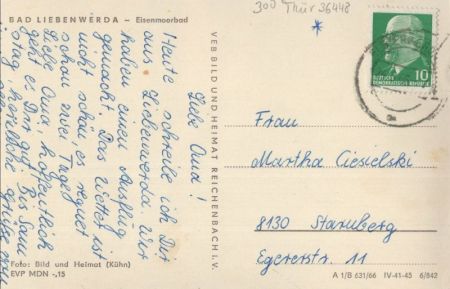 300 Thür 36448
BAD LIEBENWERDA – Eisenmoorbad
Liebe Oma!
Heute schreibe ich Dir
aus Liebenwerda. Wir
haben einen Ausflug
gemacht. Das Wetter ist
nicht schön, es regnet
schon zwei Tage.
Liebe Oma, hoffentlich
geht es Dir gut. Bis Sam
stag, herzliche Grüße
Foto: Bild und Heimat (Kühn)
EVP MDN -,15
VEB BILD UND HEIMAT REICHENBACH I. V.
DEUTSCHE
DEMOKRATISCHE REPUBLIK
10
Frau
Martha Ciesielski
8130 Starnberg
Egererstr. 11
A 1/B 631/66 IV-41-45 6/842